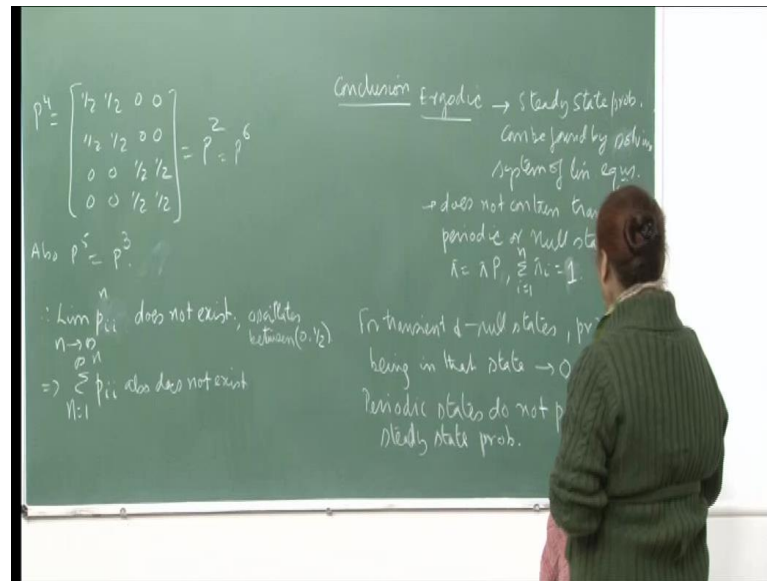 P⁴ = [ 1/2 1/2 0 0
1/2 1/2 0 0
0 0 1/2 1/2
0 0 1/2 1/2 ] = P² = P⁶
Also P⁵ = P³.
∴ Lim n→∞ pᵢᵢⁿ does not exist, oscillates between (0, 1/2).
⇒ ∞ Σ n=1 pᵢᵢⁿ also does not exist
Conclusion Ergodic → Steady State prob.
can be found by solving
system of lin equs.
→ does not contain
periodic or null
π = πP, n Σ i=1 πᵢ = 1.
For transient & null states,
being in that state → 0
Periodic states do not
steady state prob.